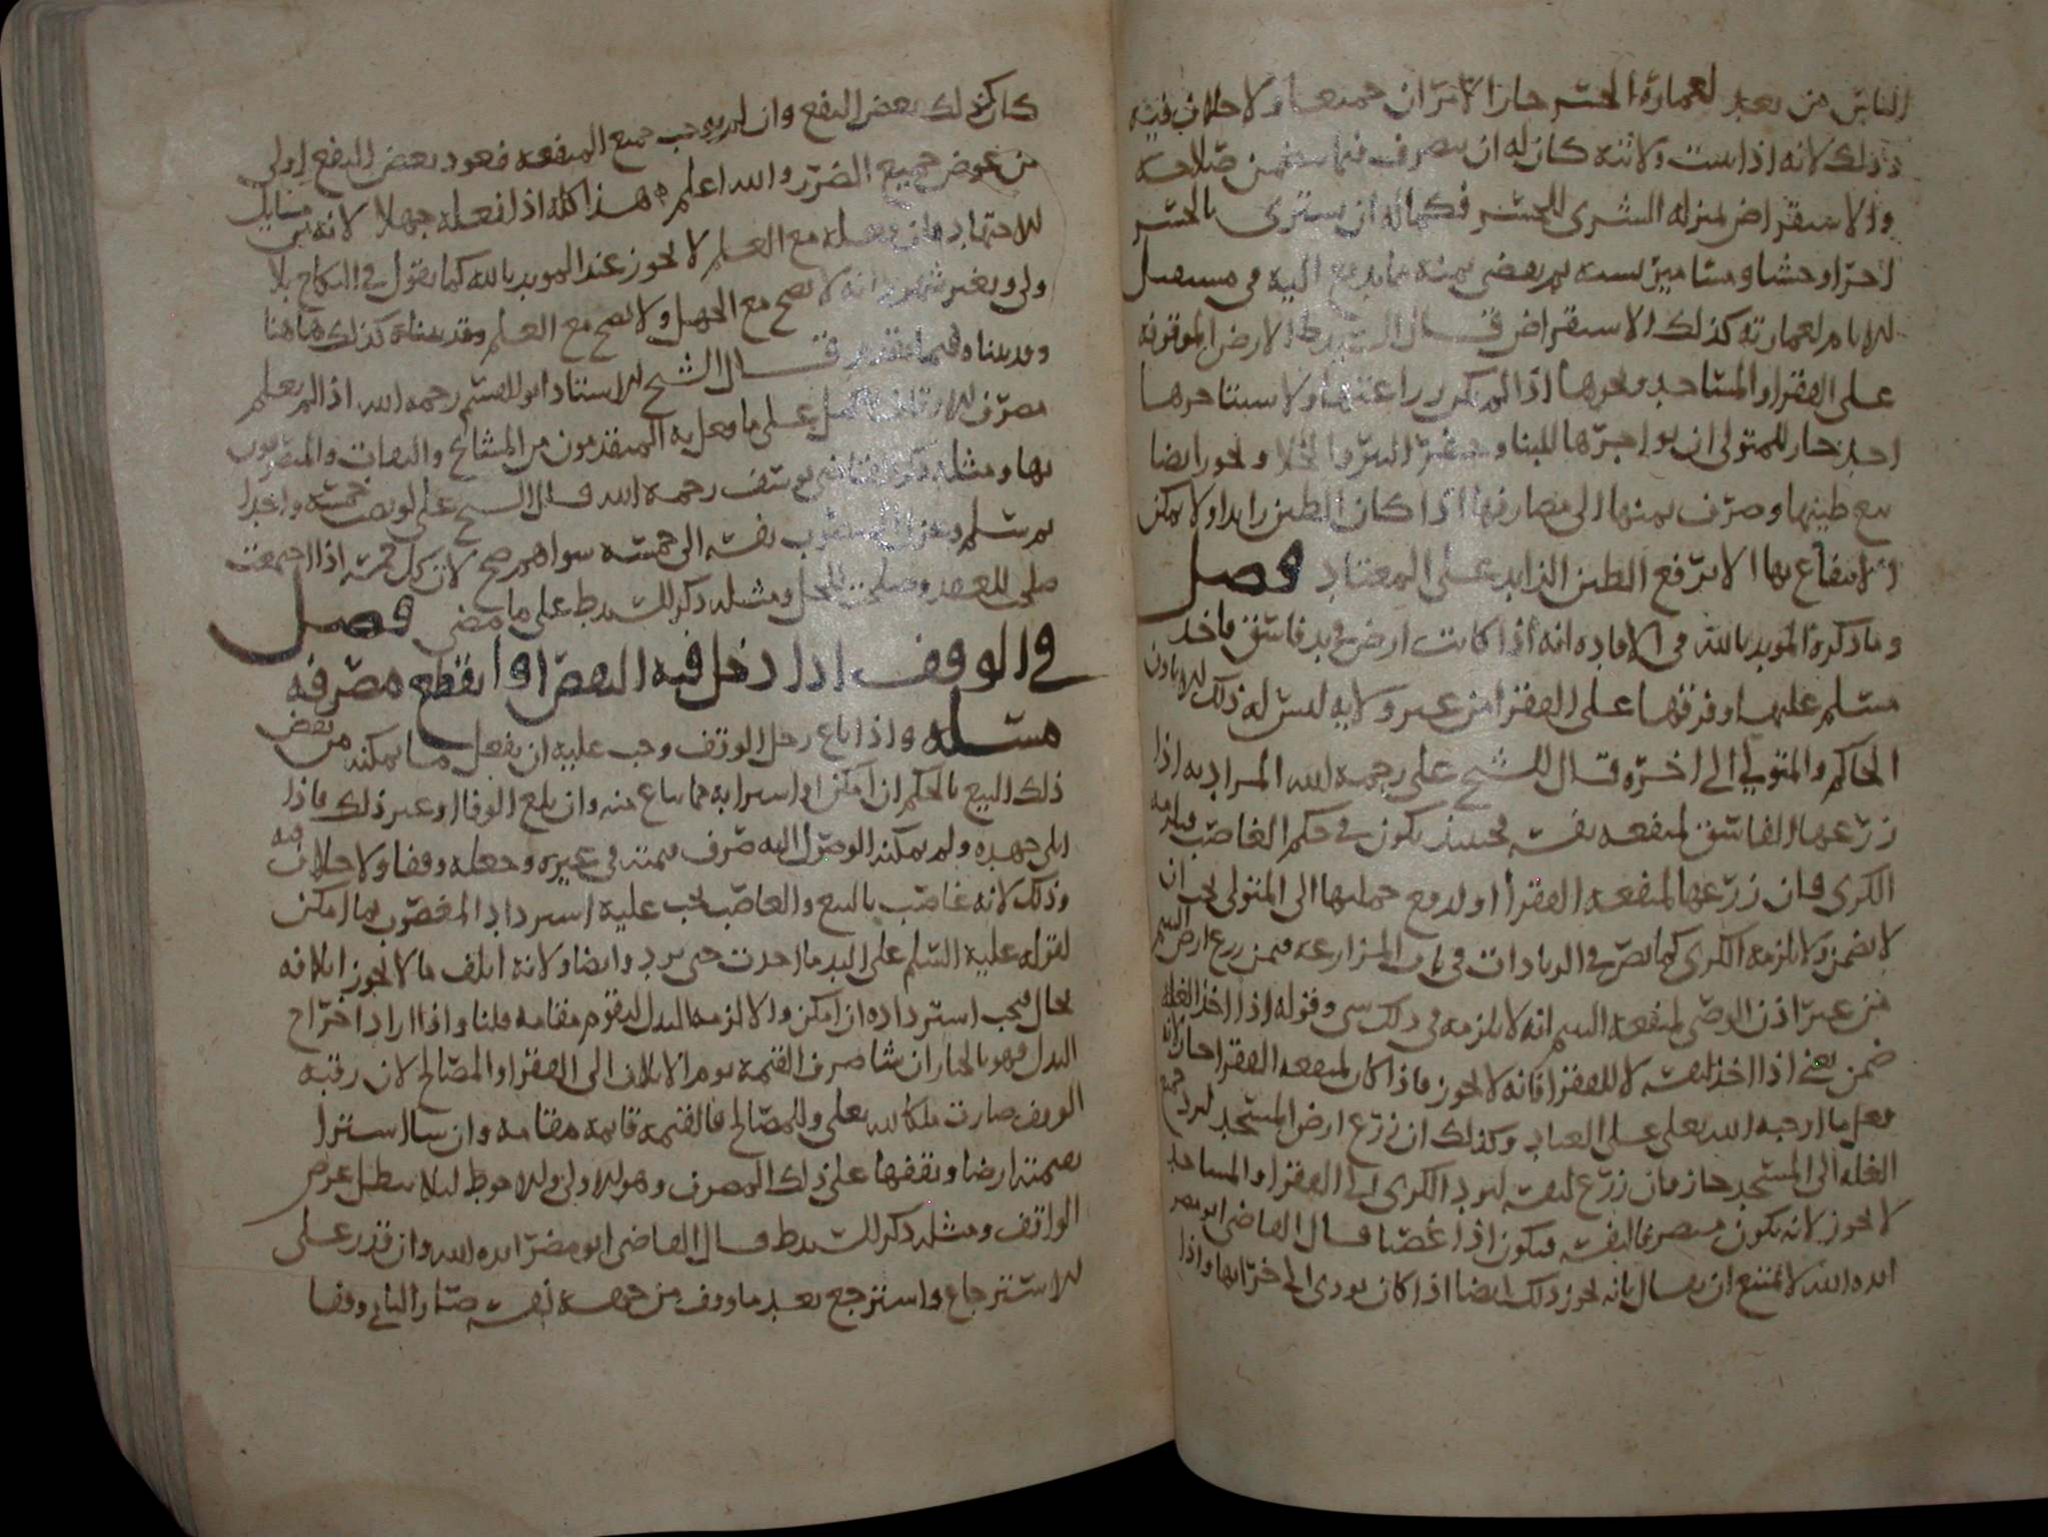 الناس من بعد لعمارة الجسر جاز الامران جميعا ولا خلاف فيه
وذلك لانه اذا ثبت ولايته كان له ان يتصرف فيما يتضمن صلاحه
والاستقراض بمنزله الشرى للجسر فكما له ان يشترى للجسر
اجرا وخشبا ومسامير نسيه ثم يقضى ثمنه مما يدفع اليه فى مستقبل
الايام لعمارته كذلك الاستقراض قال السيد ط الارض الموقوفه
على الفقرا والمساجد ونحوها اذا لم يكن زراعتها ولا استاجرها
احد جاز للمتولى ان يواجرها للبنا وحفر البير والخلا ويجوز ايضا
بيع طينها وصرف ثمنها الى مصارفها اذا كان الطين زايدا ولا يمكن
الانتفاع بها الا برفع الطين الزايد على المعتاد فصل
وما ذكره المويد بالله فى الافاده انه اذا كانت ارض فى يد فاسق فاخذ
مسلم غلتها وفرقها على الفقرا من غير ولايه ليس له ذلك الا باذن
الحاكم والمتولي الى اخره قال الشيخ على رحمه الله المراد به اذا
زرعها الفاسق لمنفعه نفسه فحينئذ يكون فى حكم الغاصب فيلزمه
الكرى فان زرعها لمنفعه الفقرا او لدفع حملتها الى المتولى يجب ان
لا يضمن ولا يلزمه الكرى كما نص فى الزيادات فى باب المزارعه فيمن زرع ارض اليتيم
من غير اذن الوصى لمنفعه اليتيم انه لا يلزمه فى ذلك شى وقوله اذا اخذ الغله
ضمن يعنى اذا اخذ لنفسه لا للفقرا فانه لا يجوز فاذا كان لمنفعه الفقرا جاز لانه
فعل ما اوجبه الله تعلى على العباد وكذلك ان زرع ارض المسجد ليرد جميع
الغله الى المسجد جاز فان زرع لنفسه ليرد الكرى الى الفقرا والمساجد
لا يجوز لانه يكون متصرفا لنفسه فيكون اذا غصبا قال القاضى ابو مضر
ايده الله لا يمتنع ان يقال بانه يجوز ذلك ايضا اذا كان يودى الى خرابها واذا
كان كذلك بعض النفع وان لم يوجب جميع المنفعه فعود بعض النفع اولى
من عوض جميع الضرر والله اعلم هذا كله اذا فعله جهلا لانه من مسايل
الاجتهاد فان فعله مع العلم لا يجوز عند المويد بالله كما يقول فى النكاح بلا
ولى وبغير شهود انه لا يصح مع الجهل ولا يصح مع العلم وقد بيناه كذلك هاهنا
وقد بيناه فيما تقدم قال الشيخ الاستاذ ابو القسم رحمه الله اذا لم يعلم
مصرف الاوقاف يحمل على ما فعل به المتقدمون من المشايخ والثقات والمتصرفون
بها ومثله ذكر القاضى يوسف رحمه الله قال الشيخ على لو نصب خمسه واحدا
ثم سلم وعزل المنصوب نفسه الى خمسه سواهم صح لان كل خمسه اذا اجتمعت
صلحت للعقد وصلحت للحل ومثله ذكر السيد ط على ما مضى فصل
فى الوقف اذا دخل فيه النقص او انقطع مصرفه
مسله واذا باع رجل الوقف وجب عليه ان يفعل ما يمكنه من نقض
ذلك البيع بالحكم ان امكن او اشترا به مما باع منه وان بلغ الوفا او غير ذلك فاذا
ابلى جهده ولم يمكنه الوصول اليه صرف قيمته فى غيره وجعله وقفا ولا خلاف فيه
وذلك لانه غاصب بالبيع والغاصب يجب عليه استرداد المغصوب بما امكن
لقوله عليه السلم على اليد ما اخذت حتى ترد وايضا ولانه اتلف ما لا يجوز اتلافه
بحال فيجب استرداده ان امكن والا لزمه البدل ليقوم مقامه قلنا واذا اراد اخراج
البدل فهو بالخيار ان شا صرف القيمه يوم الاتلاف الى الفقرا والمصالح لان رقبه
الوقف صارت ملكا لله تعلى وللمصالح فالقيمه قايمه مقامه وان شا اشترا
بقيمته ارضا ويقفها على ذلك المصرف وهو الاولى والاحوط لئلا يبطل غرض
الواقف ومثله ذكر السيد ط قال القاضى ابو مضر ايده الله وان قدر على
الاسترجاع واسترجع بعد ما وقف من جهه نفسه صار الثانى وقفا